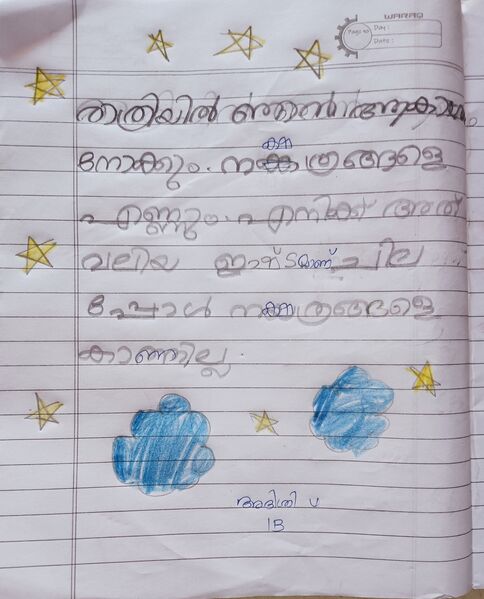 WARAQ
Page no
Day :
Date :
രാത്രിയിൽ ഞാൻ ആകാശം
നോക്കും. നക്ഷത്രങ്ങളെ
എണ്ണും. എനിക്ക് അത്
വലിയ ഇഷ്ടമാണ് ചില
പ്പോൾ നക്ഷത്രങ്ങളെ
കാണില്ല.
അദിതി V
1B